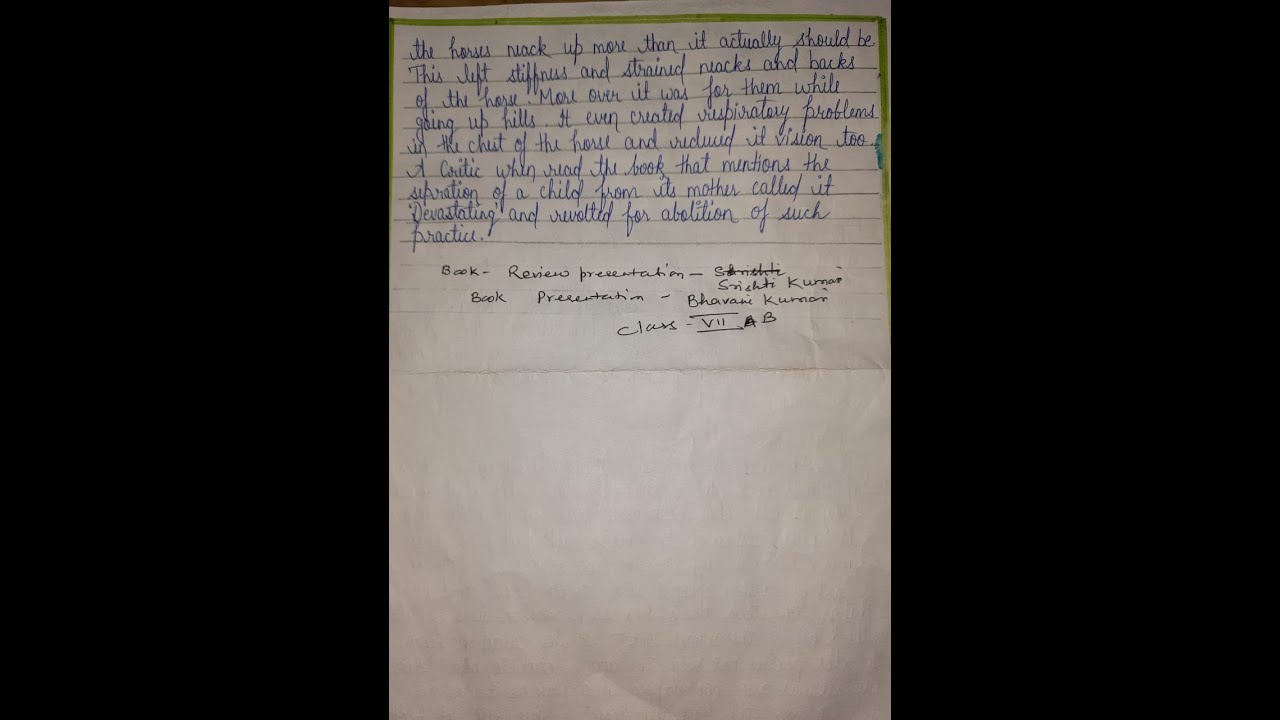 the horses neack up more than it actually should be.
This left stiffness and strained neacks and backs
of the horse. More over it was for them while
going up hills. It even created respiratory problems
in the chest of the horse and reduced it vision too.
A Critic when read the book that mentions the
sepration of a child from its mother called it
'Devastating' and revolted for abolition of such
practice.
Book - Review presentation - Srishti
Srishti Kumar
Book Presentation - Bhavani Kumar
Class - VII A B